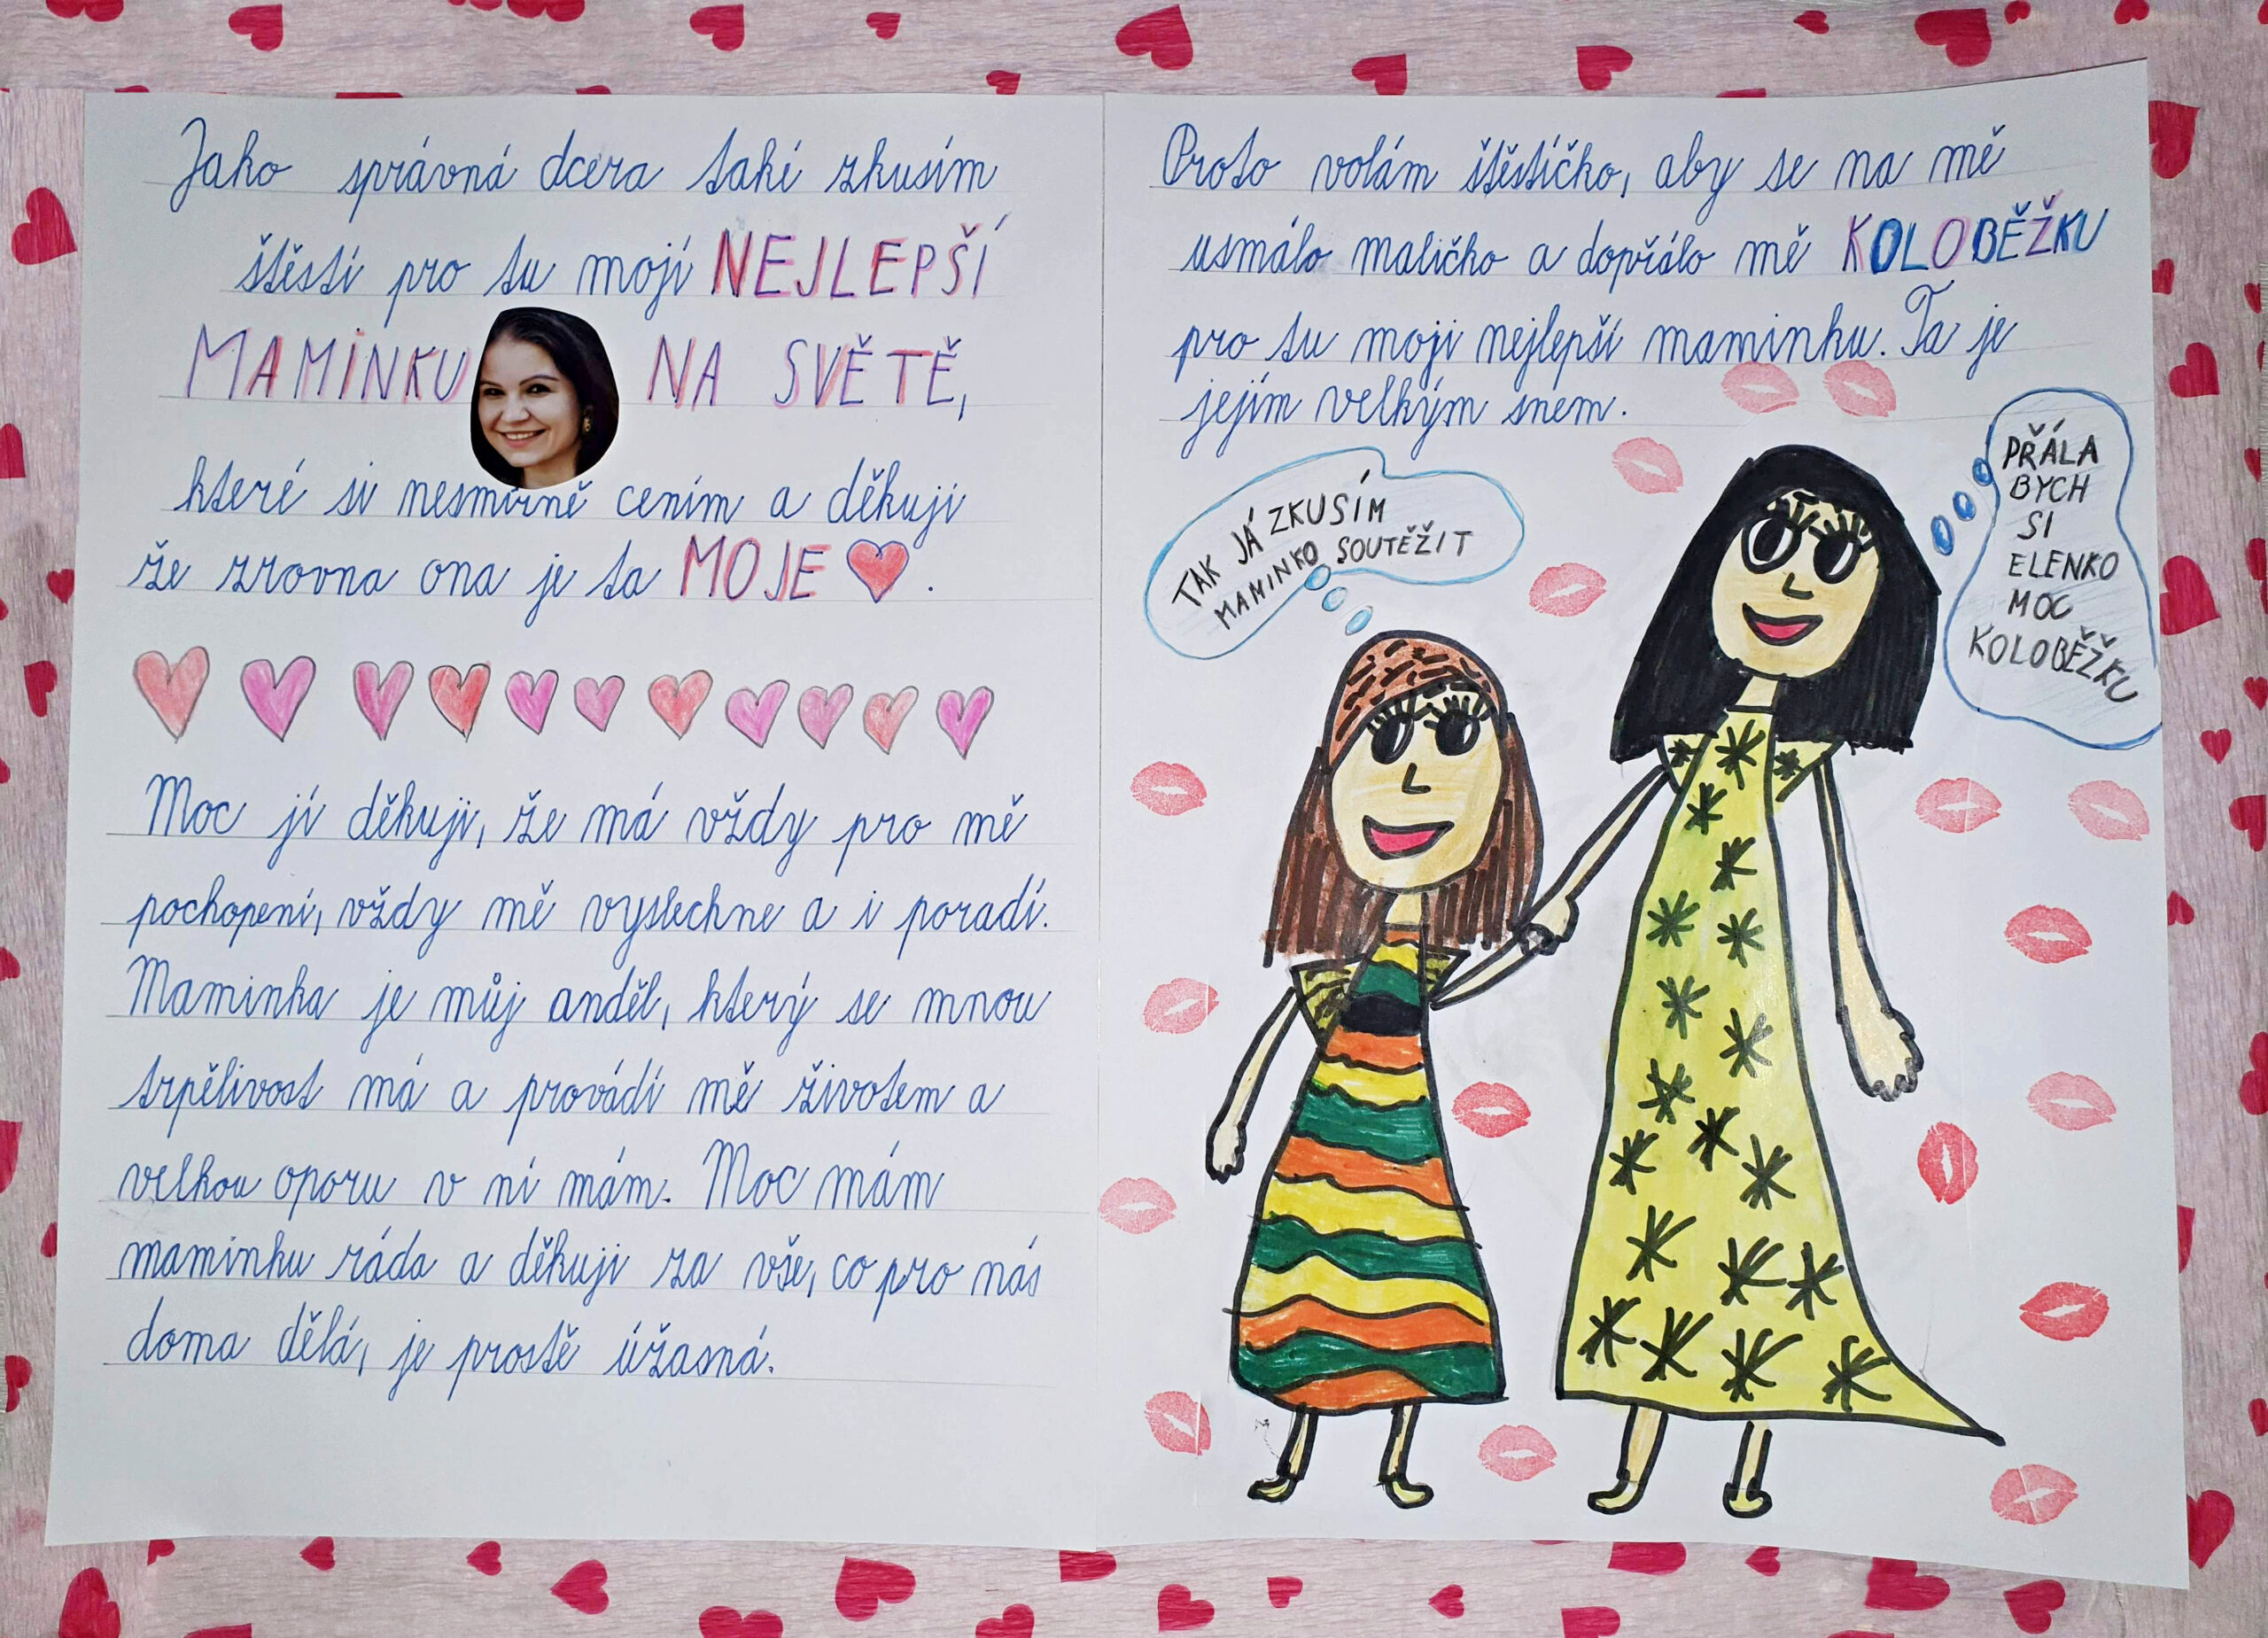 Jako správná dcera také zkusím
štěstí pro tu moji NEJLEPŠÍ
MAMINKU NA SVĚTĚ,
které si nesmírně cením a děkuji
že zrovna ona je ta MOJE
Moc jí děkuji, že má vždy pro mě
pochopení, vždy mě vyslechne a i poradí.
Maminka je můj anděl, který se mnou
trpělivost má a provádí mě životem a
velkou oporu v ní mám. Moc mám
maminku ráda a děkuji za vše, co pro nás
doma dělá, je prostě úžasná.
Proto volám štěstíčko, aby se na mě
usmálo maličko a dopřálo mě KOLOBĚŽKU
pro tu moji nejlepší maminku. Ta je
jejím velkým snem.
TAK JÁ ZKUSÍM
MAMINKO SOUTĚŽIT
PŘÁLA
BYCH
SI
ELENKO
MOC
KOLOBĚŽKU